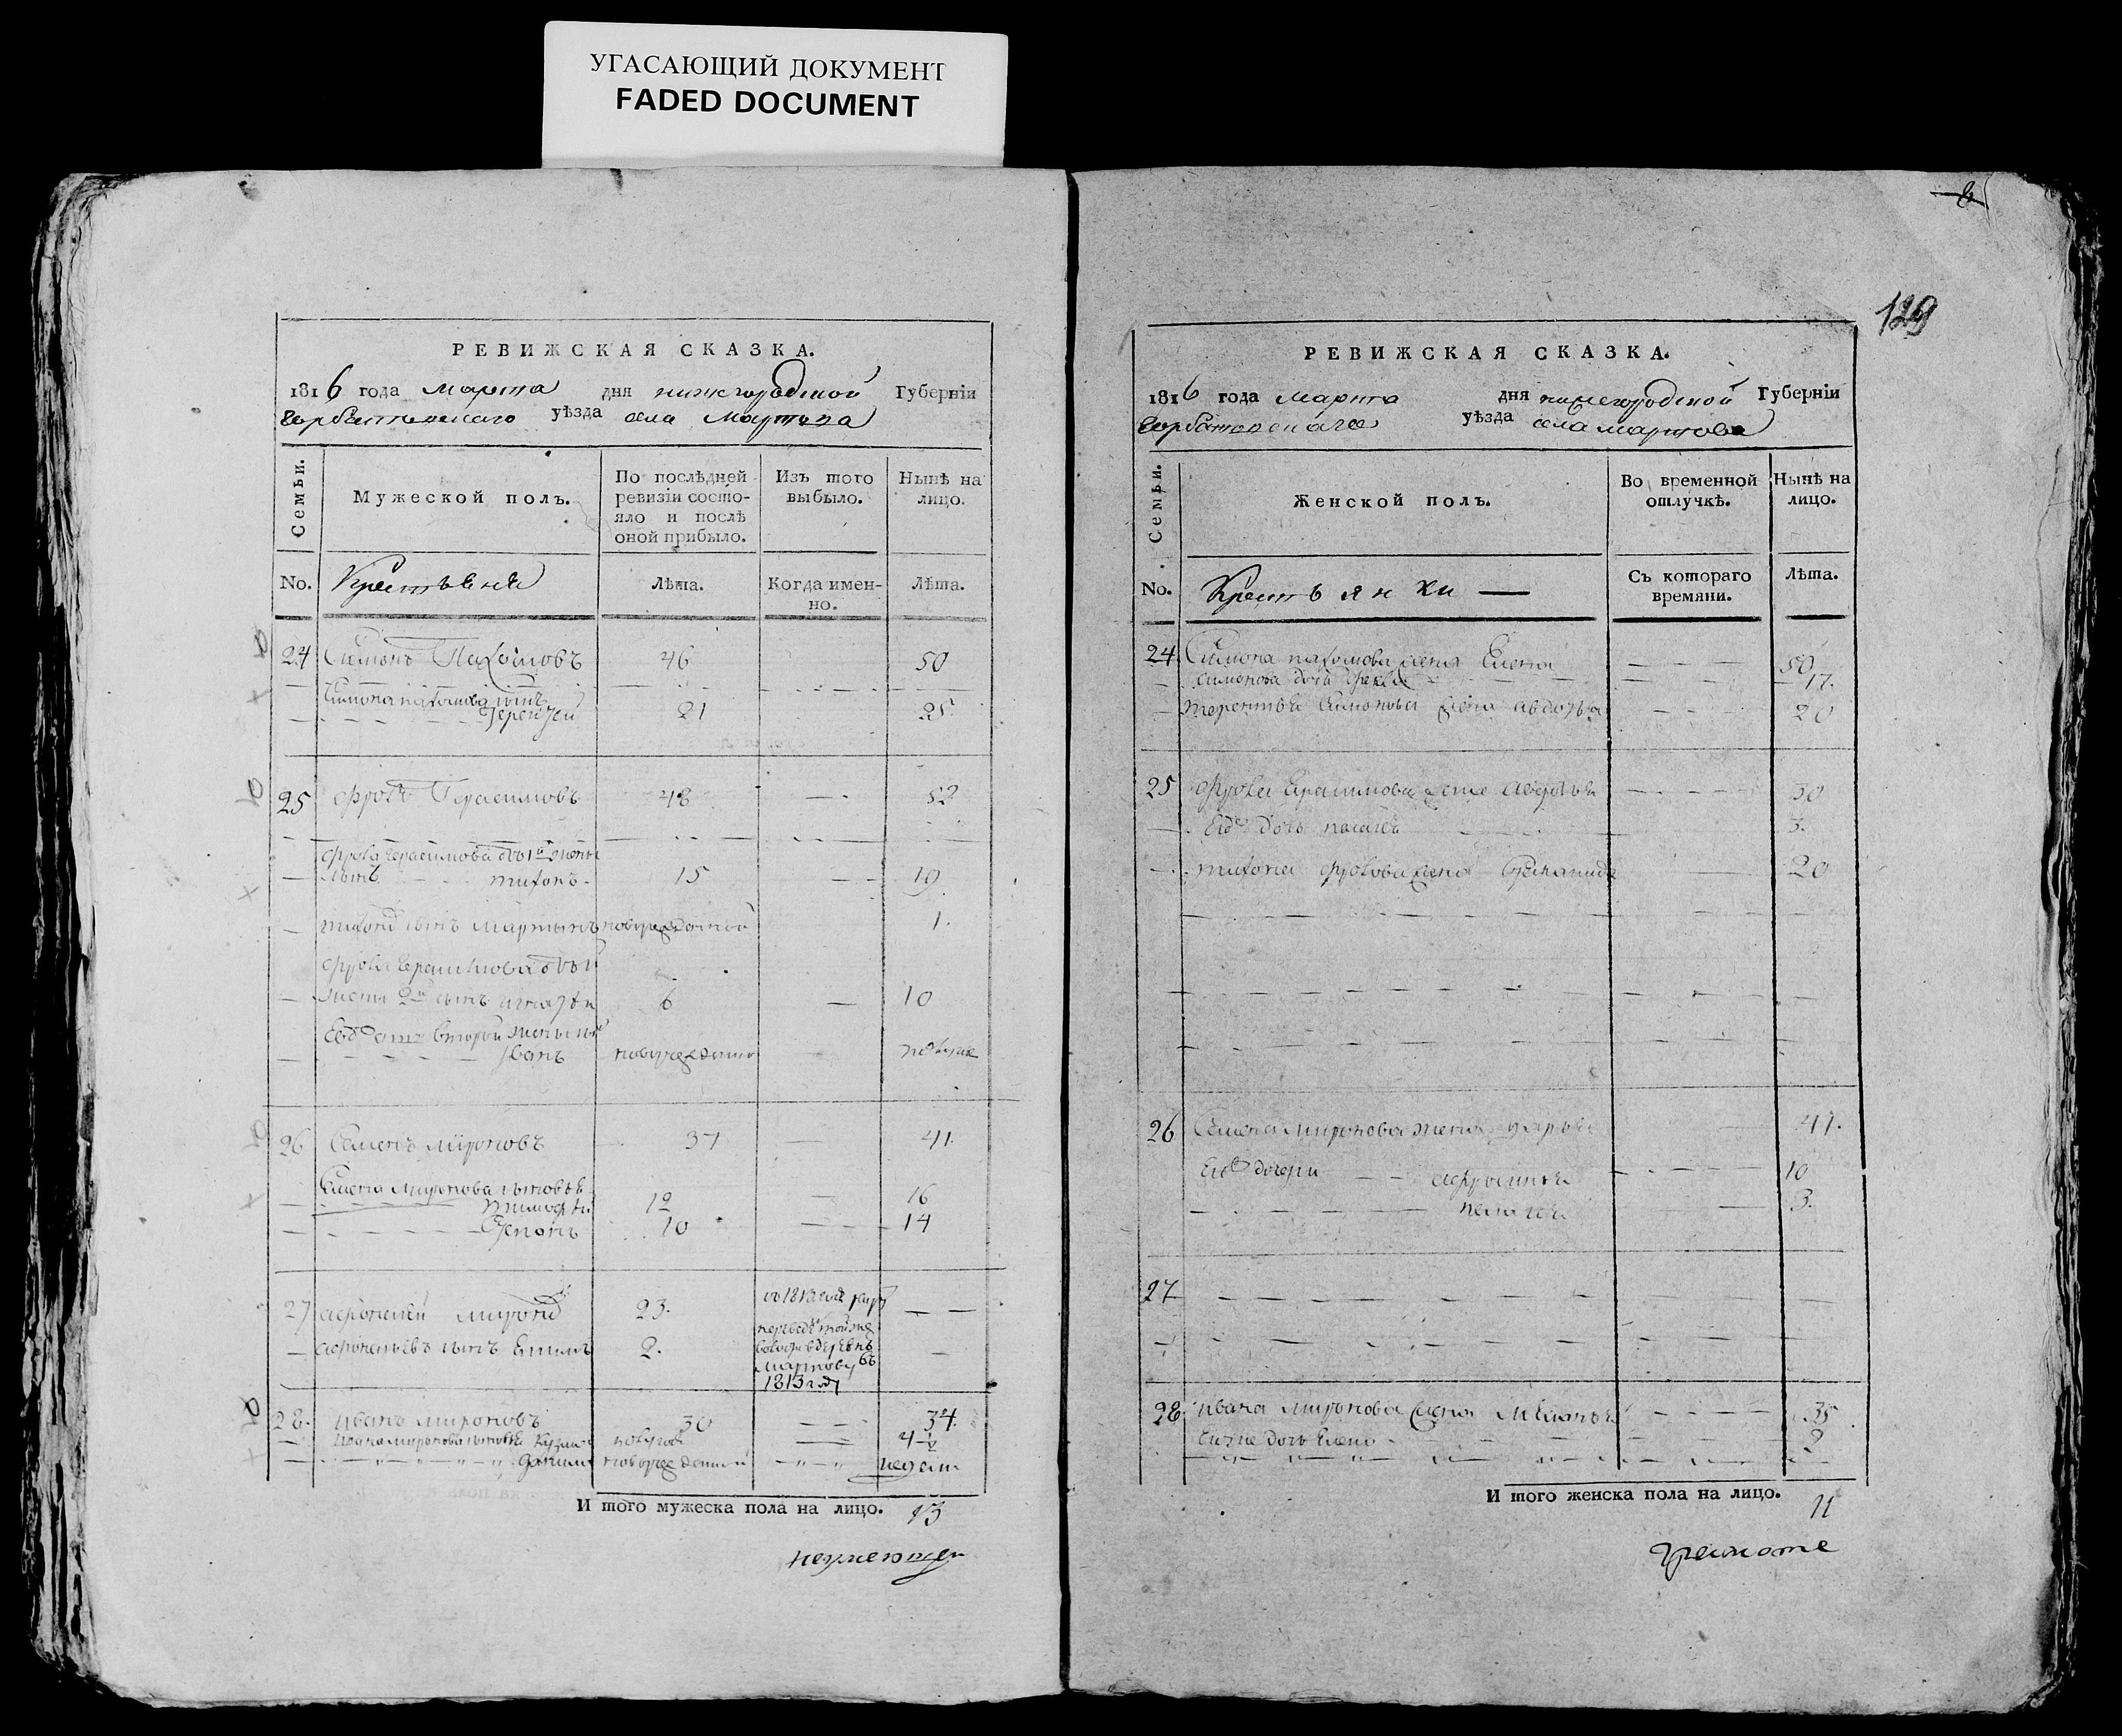 УГАСАЮЩИЙ ДОКУМЕНТ
FADED DOCUMENT
РЕВИЖСКАЯ СКАЗКА.
1816 года марта дня нижегородской Губерніи
Горбатовскаго уѣзда села Мартова
Семьи.
Мужеской полъ.
По послѣдней
ревизіи состо-
яло и послѣ
оной прибыло.
Изъ того
выбыло.
Нынѣ на
лицо.
No.
Крестьяня
Лѣта.
Когда имен-
но.
Лѣта.
24 Симонъ Пахомовъ 46 50
Симона пахомова сынъ
Терентей 21 25
25 Фролъ Герасимовъ 48 52
Фрола Герасимова отъ 1й жены
сынъ тихонъ 15 19
тихона сынъ Мартынъ новорожденной 1.
Фрола Герасимова отъ
жены 2й сынъ игнатеи 6 10
Ево отъ второй жены сынъ
Иванъ
26 Семенъ мироновъ 37 41.
Семена миронова сыновья
тимофеи 12 16
Степанъ 10 14
27 афонасеи миронов 23.
афонасьевъ сынъ Ефимъ 2.
в 1812 годе
переведенъ тойже
вотчины в деревнь
Мартову въ
1813 году
28. иванъ мироновъ 30 34.
ивана миронова сыновья
Данила новорожденной недели
И того мужеска пола на лицо. 13
неумеющей
129
РЕВИЖСКАЯ СКАЗКА.
1816 года марта дня нижегородской Губерніи
Горбатовскаго уѣзда села мартова
Семьи.
Женской полъ.
Во временной
отлучкѣ.
Нынѣ на
лицо.
No.
Крестьянки
Съ котораго
времяни.
Лѣта.
24 Симона пахомова жена Елена 50
симонова дочь Фекла 17.
терентья Симонова жена авдотья 20
25 Фрола Герасимова жена 30
Ево дочь пелагея 3.
тихона фролова жена Степанида 20
26 Семена миронова жена дарья 41.
Ево дочери афросинья 10
пелагея 3.
27
28 ивана миронова жена Меланья 35
дочь Елена
И того женска пола на лицо. 11
грамоте